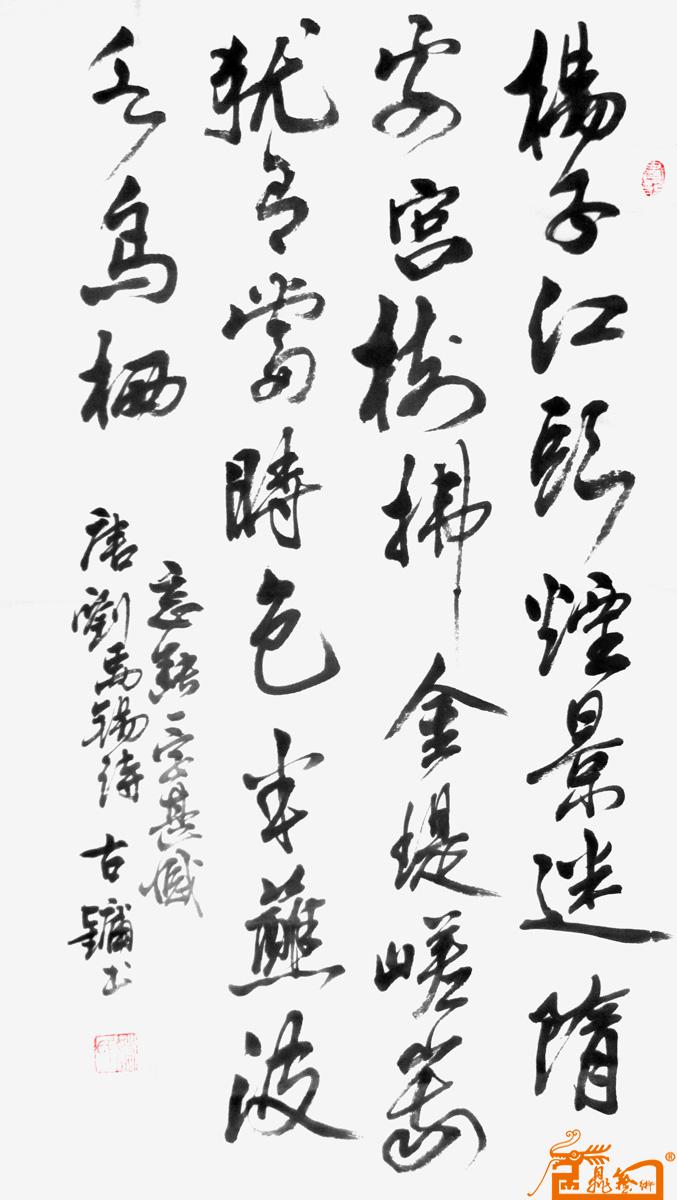 楊子江頭煙景迷隋
家宮樹拂金堤嵯峩
猶有當時色半蘸波
水鳥栖
忘一字甚憾
唐劉禹錫詩 古鏞書